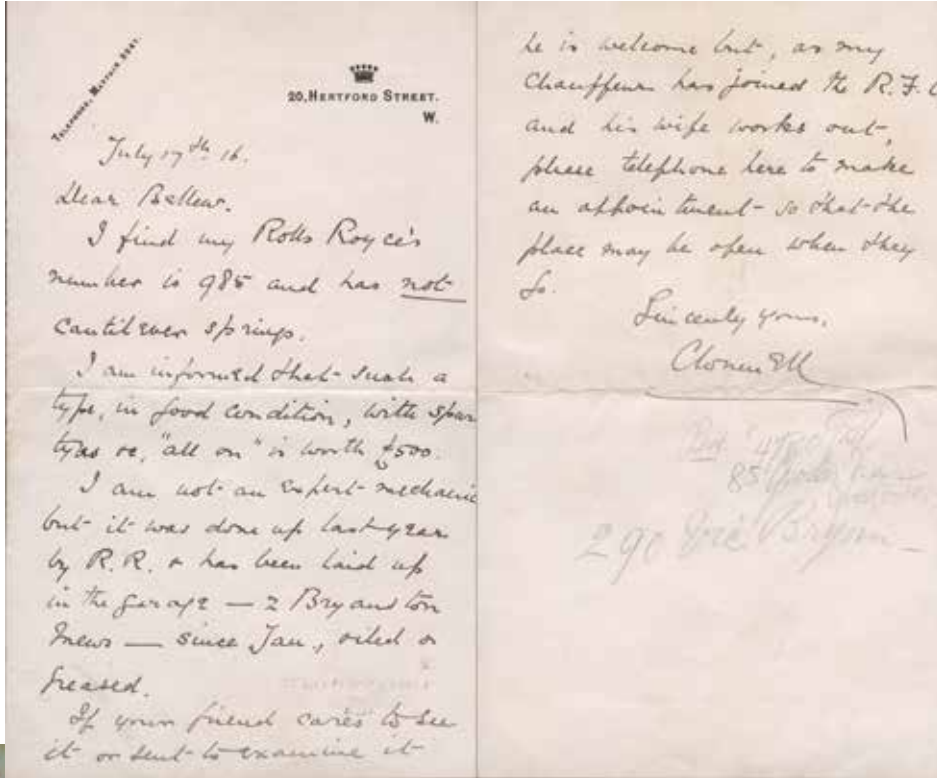 TELEPHONE, MAYFAIR
20, HERTFORD STREET.
W.
July 17th 16.
Dear Bellew.
I find my Rolls Royce's
number is 985 and has not
cantilever springs.
I am informed that such a
type, in good condition, with spare
tyres &c, "all on" is worth £500.
I am not an expert mechanic
but it was done up last year
by R.R. & has been laid up
in the garage — 2 Bryanston
Mews — since Jan, oiled &
greased.
If your friend cares to see
it or send to examine it
he is welcome but, as my
Chauffeur has joined the R.F.C
and his wife works out,
please telephone here to make
an appointment so that the
place may be open when they
go.
Sincerely yours,
Clonmell
85
290